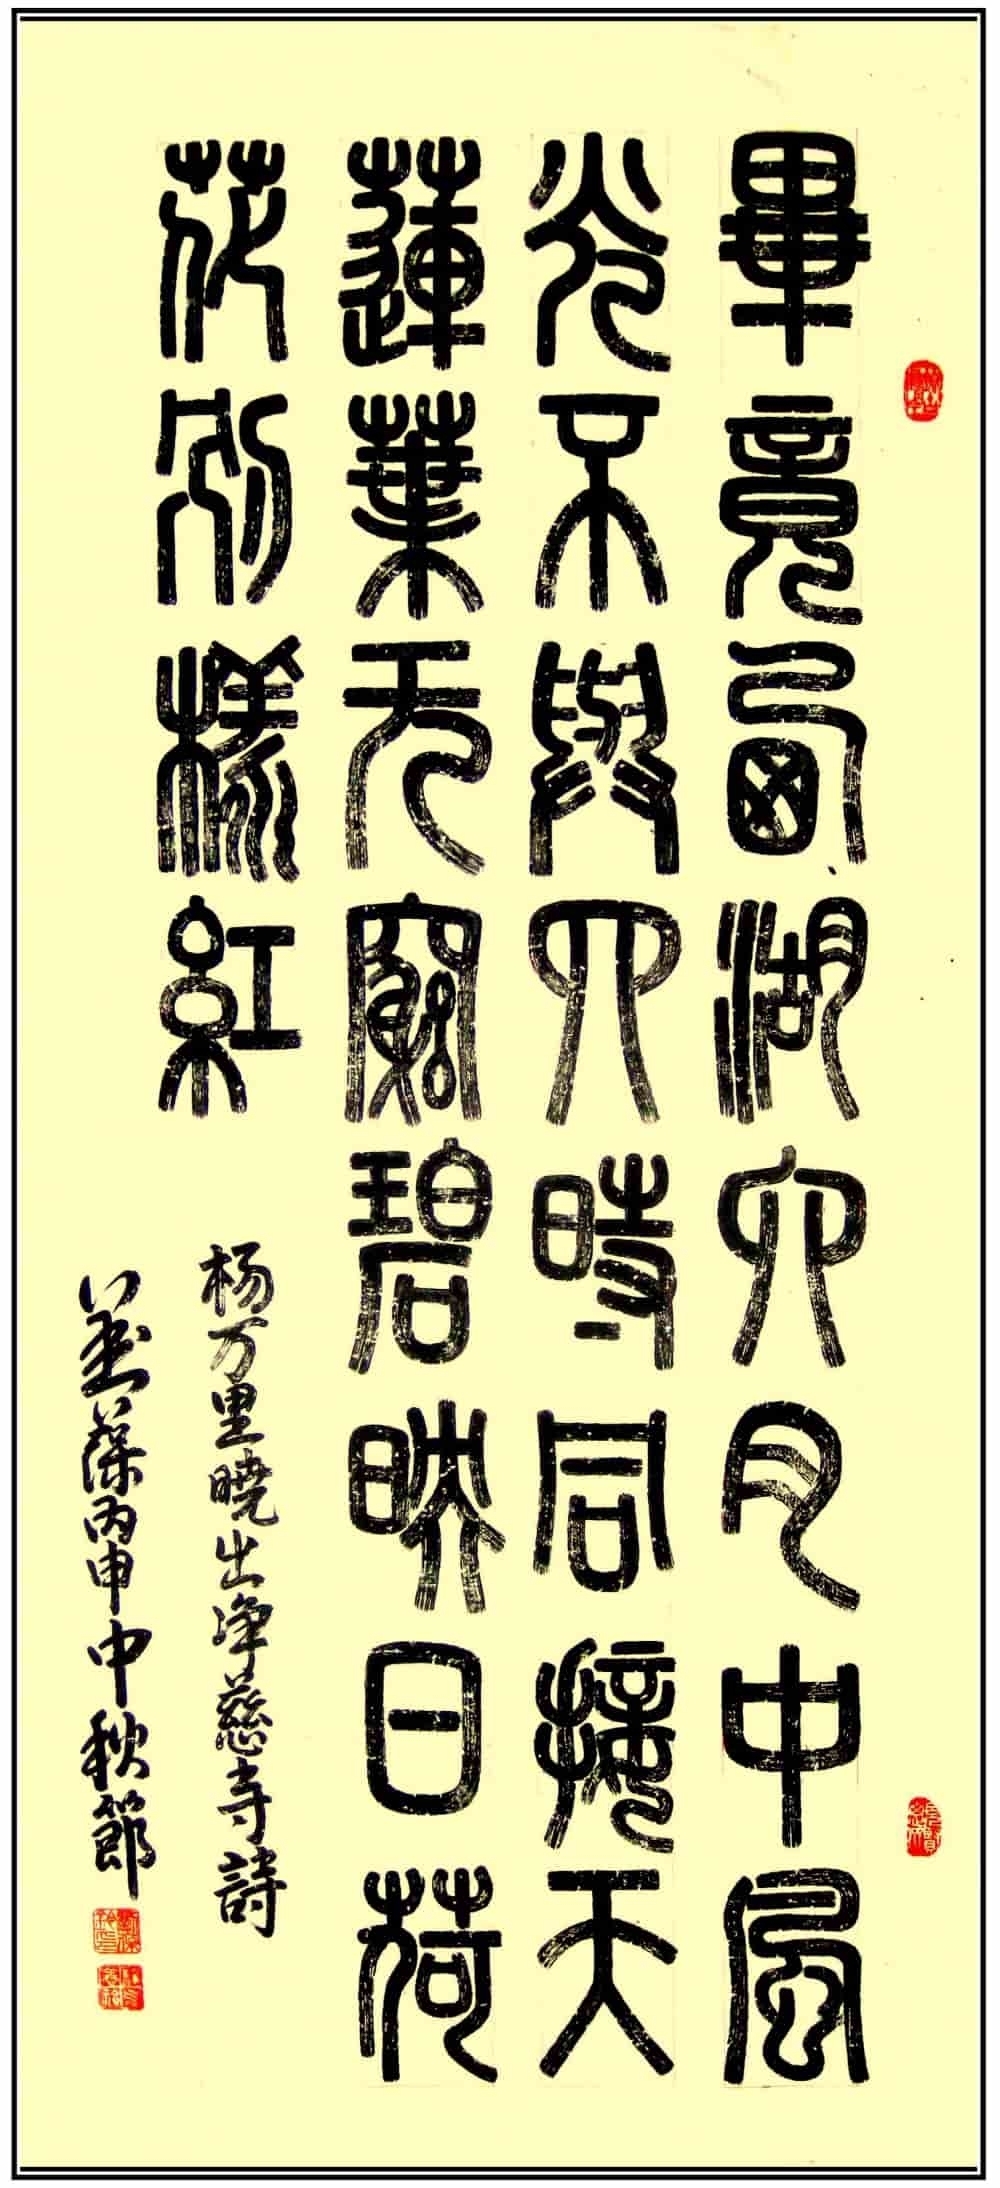 畢竟西湖六月中風
光不與四時同接天
蓮葉无窮碧映日荷
花別樣紅
杨万里曉出净慈寺詩
丙申中秋節